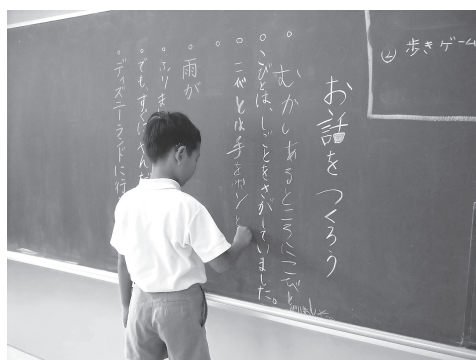 歩きゲーム
お話をつくろう
。むかしあるところにこびと
。こびとは、しごとをさがしていました。
。こびとは手をポンと
。
。雨が
。ふりま
。でも、すぐに
。ディズニーランドに行